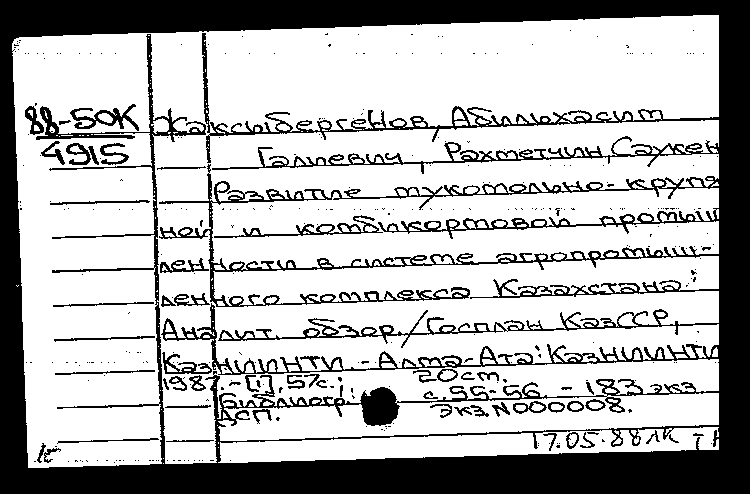 88-50К Жаксыбергенов, Абилихасим
4915 Галиевич, Рахметчин, Саукен
Развитие мукомольно-крупя
ной и комбикормовой промыш
ленности в системе агропромыш-
ленного комплекса Казахстана:
Аналит. обзор./Госплан КазССР,
КазНИИНТИ.-Алма-Ата: КазНИИНТИ
1987.-[1], 57с.; 20см.
Библиогр: с. 55-56. - 183 экз.
ДСП. Экз. N000008.
17.05.88